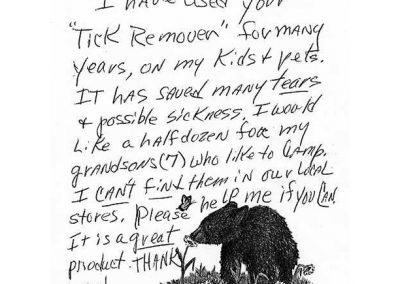 I have used your
"Tick Remover" for many
years, on my Kids & pets.
IT HAS SAVED MANY tears
& possible sickness. I would
Like a half dozen for my
grandsons (7) who like to CAMP.
I CAN'T find them in our local
stores. Please help me if you CAN.
It is a great
product. THANK